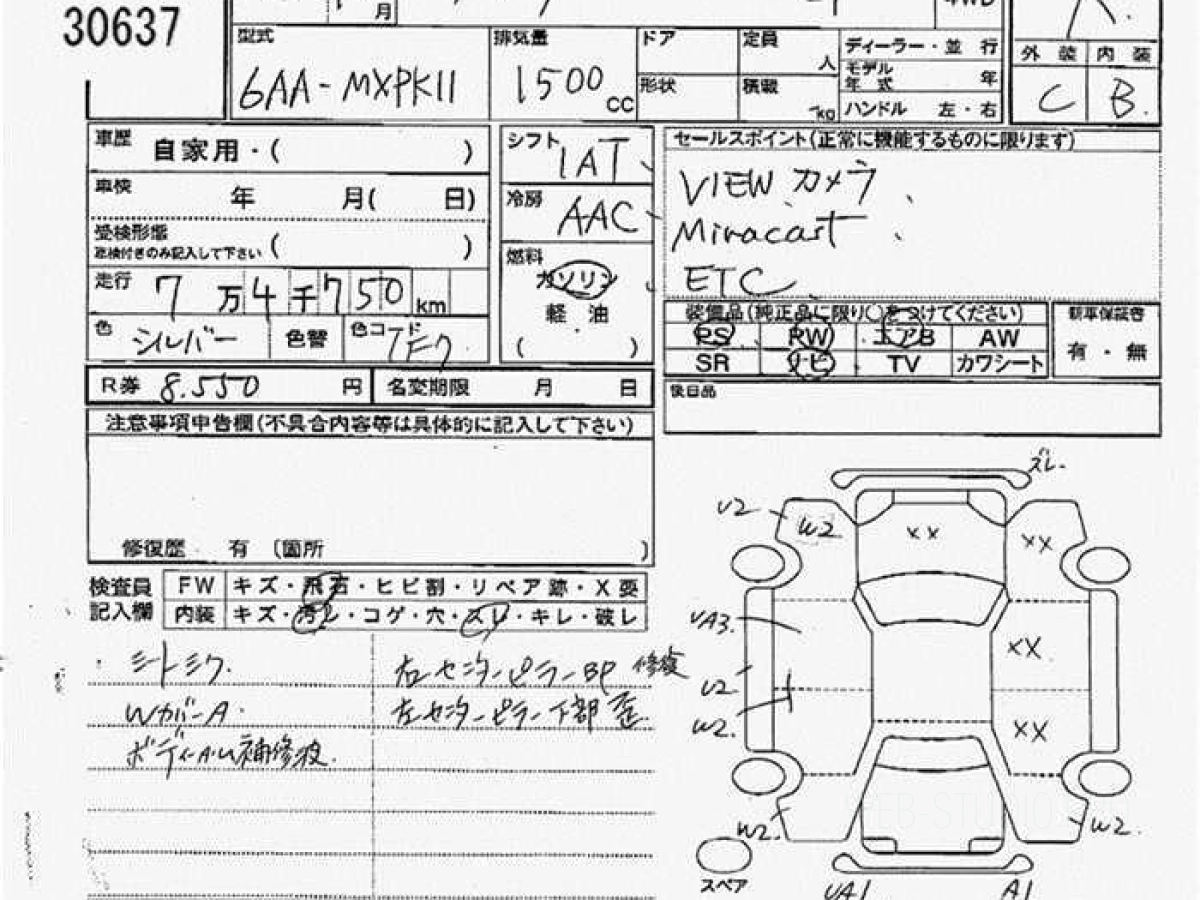 30637
月
型式
6AA-MXPK11
排気量
1500 CC
ドア
形状
定員
人
積載
kg
ディーラー・並 行
モデル年式 年
ハンドル 左・右
外 装 内 装
C B.
車歴 自家用・( )
車検 年 月( 日)
受検形態
車検付きのみ記入して下さい ( )
走行 7万4千750km
色 シルバー 色替 色コード 1F7
R券 8.550 円 名変期限 月 日
シフト 1AT
冷房 AAC
燃料
ガソリン
軽 油
( )
セールスポイント(正常に機能するものに限ります)
VIEW カメラ
Miracast
ETC
装備品(純正品に限り〇をつけてください)
PS PW エアB AW
SR ナビ TV カワシート
新車保証書
有・無
後日品
注意事項申告欄(不具合内容等は具体的に記入して下さい)
修復歴 有 〔箇所 〕
検査員
記入欄
FW キズ・飛石・ヒビ割・リペア跡・X要
内装 キズ・汚レ・コゲ・穴・スレ・キレ・破レ
シートシワ.
WカバーA.
ボディーA・U補修波.
右センターピラーBP 修復
左センターピラー下部 歪.
ズレ.
U2
W2
XX
XX
UA3.
XX
U2
W2.
XX
W2.
W2.
スペア
UA1
A1